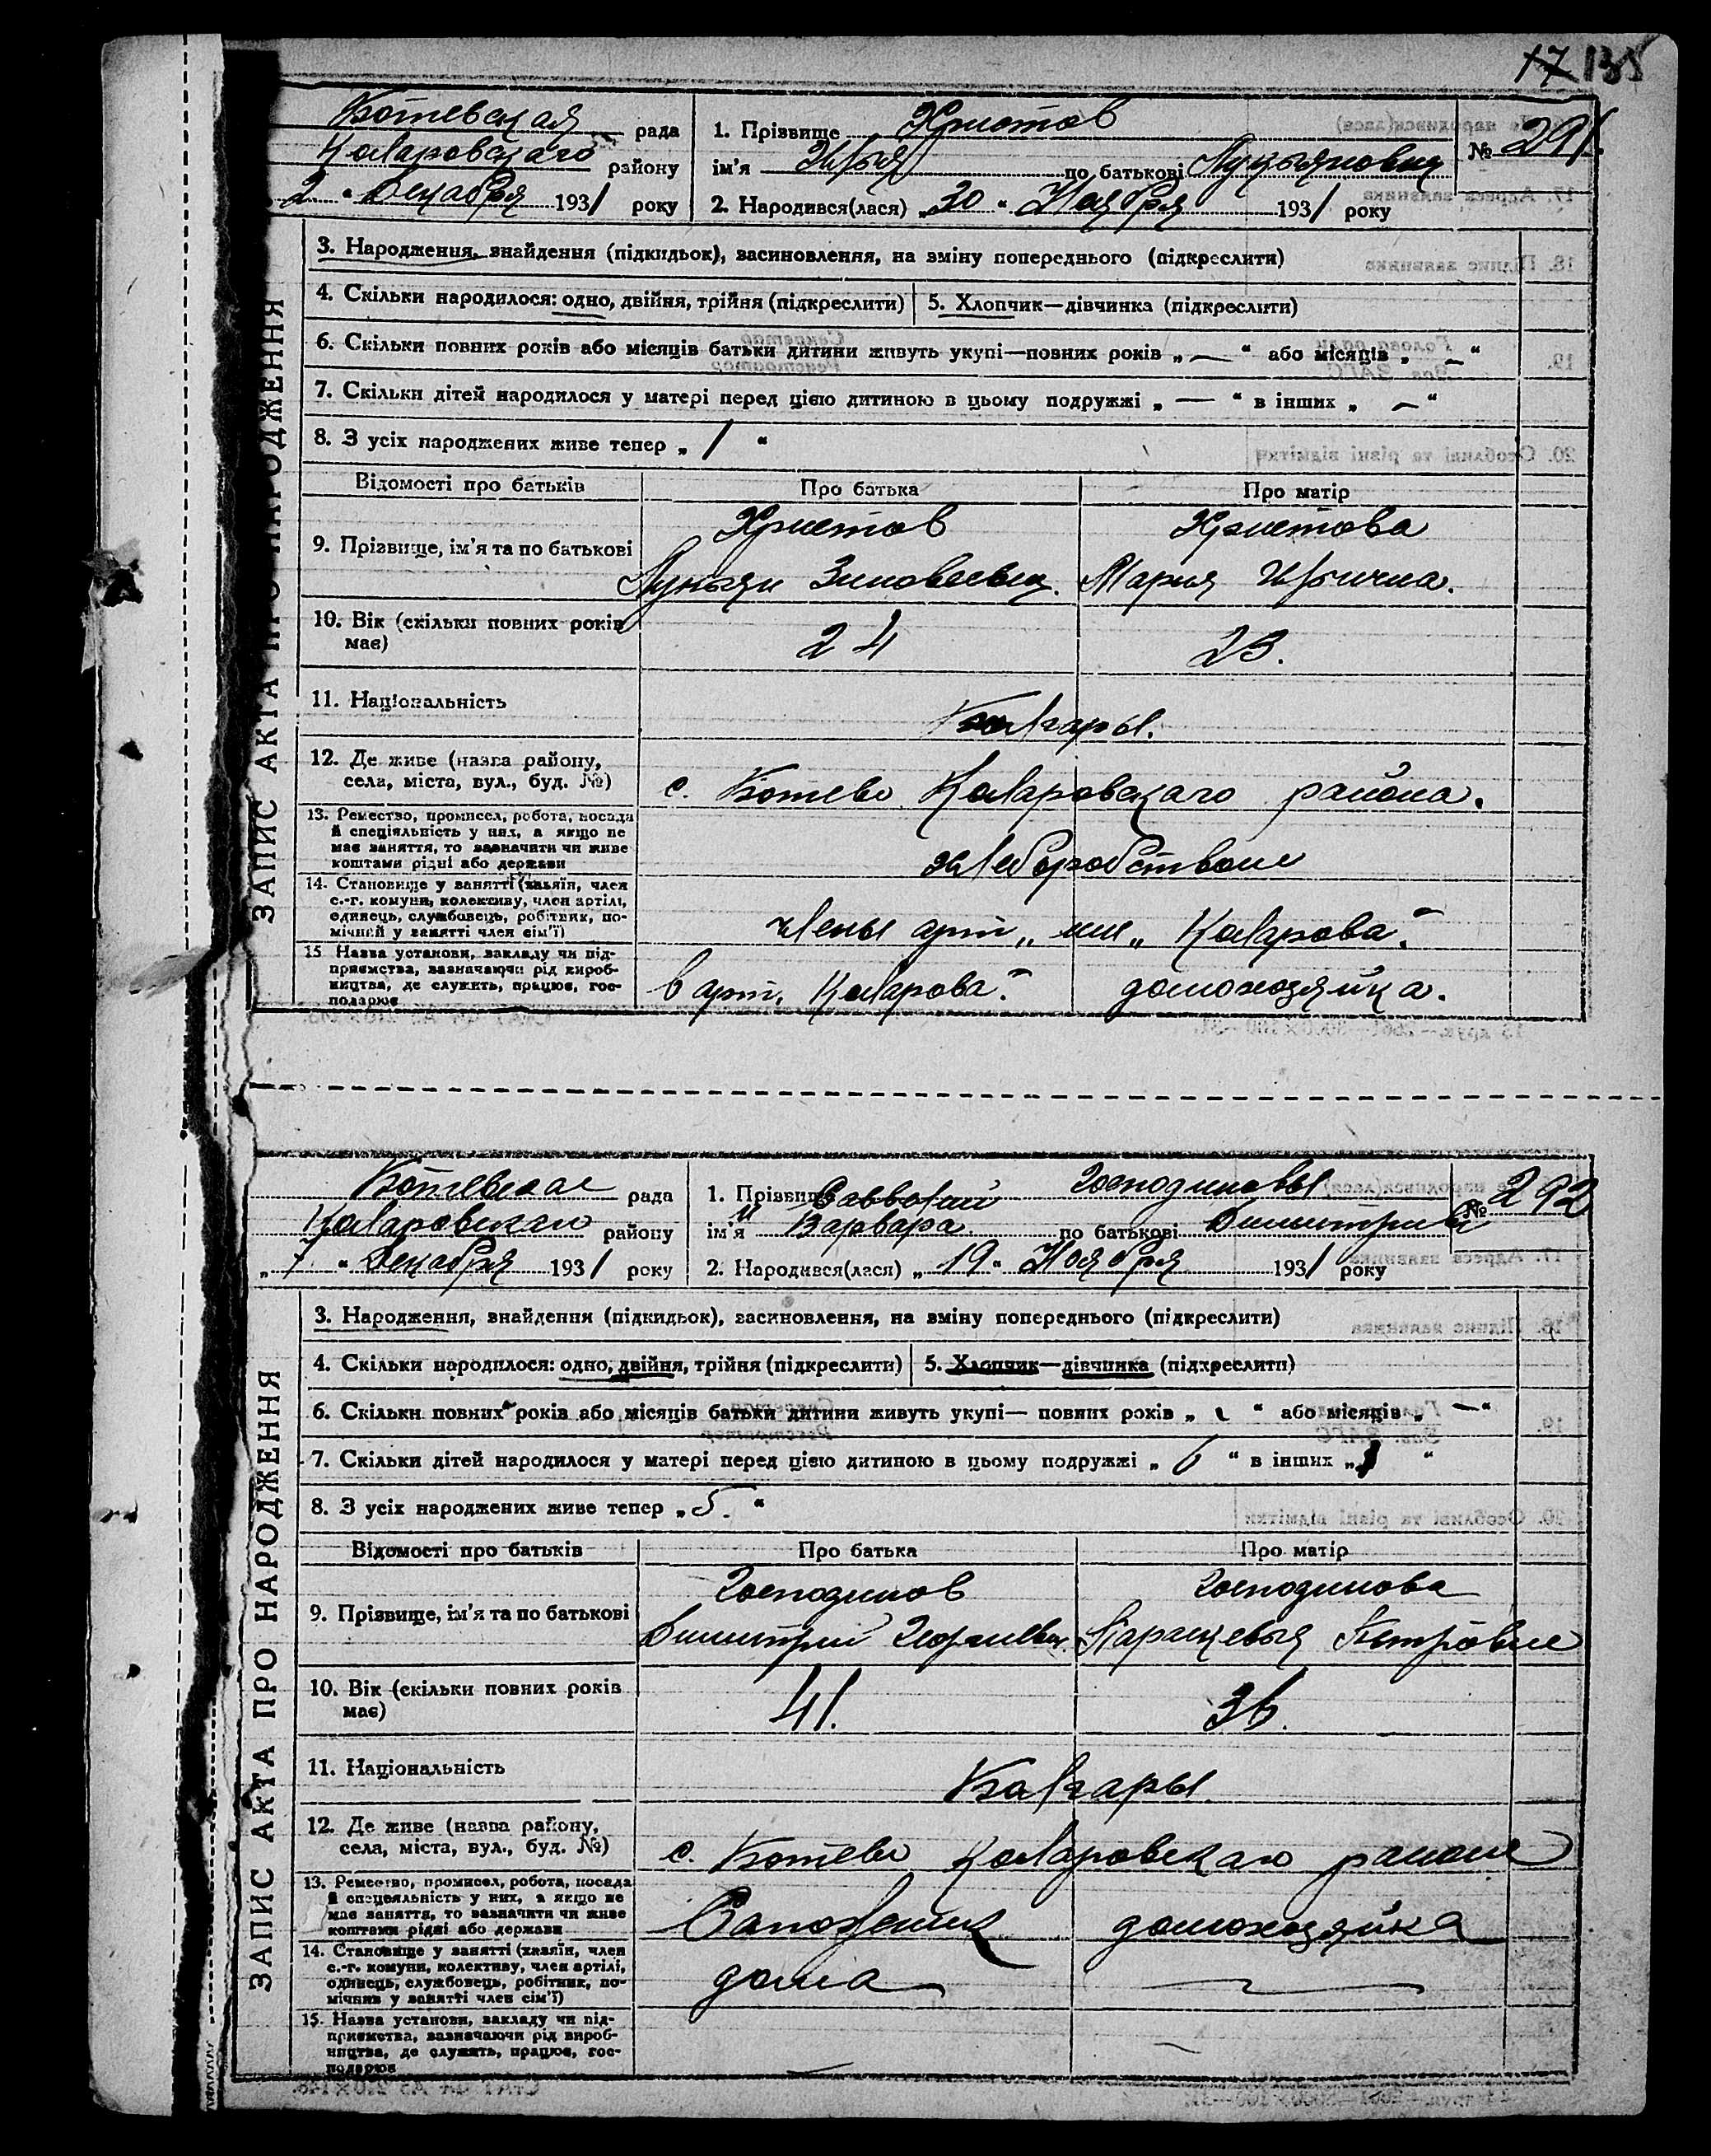 17 135
Ботевская рада
Коларовского району
2 " Декабря 1931 року
1. Прізвище Христов
ім'я Илья по батькові Лукьянович
2. Народився(лася) „30 " Ноября 1931 року
№ 291.
ЗАПИС АКТА ПРО НАРОДЖЕННЯ
3. Народження, знайдення (підкидьок), засиновлення, на зміну попереднього (підкреслити)
4. Скільки народилося: одно, двійня, трійня (підкреслити) 5. Хлопчик—дівчинка (підкреслити)
6. Скільки повних років або місяців батьки дитини живуть укупі—повних років „ — " або місяців „ — "
7. Скільки дітей народилося у матері перед цією дитиною в цьому подружжі „ — " в інших „ — "
8. З усіх народжених живе тепер „ 1 "
Відомості про батьків Про батька Про матір
9. Прізвище, ім'я та по батькові
Христов Христова
Лукьян Зиновеевич. Мария Ильична.
10. Вік (скільки повних років має) 24 23.
11. Національність Болгары.
12. Де живе (назва району, села, міста, вул., буд. №)
с. Ботево Коларовского района.
13. Ремество, промисел, робота, посада й спеціяльність у них, а якщо не має заняття, то зазначити чи живе коштами рідні або держави
хлеборобством
14. Становище у занятті (хазяїн, член с.-г. комуни, колективу, член артілі, одинець, службовець, робітник, помічний у занятті член сім'ї)
члены арт „ им „ Коларова".
15 Назва установи, закладу чи підприємства, зазначаючи рід виробництва, де служить, працює, господарює
в арт. Коларова". домохозяйка.
Ботевское рада
Коларовского району
„ 7 " Декабря 1931 року
1. Прізвище Господиновы
Савватий
и
ім'я Варвара по батькові Димитрий
2. Народився(лася) „ 19 " Ноября 1931 року
№ 292
ЗАПИС АКТА ПРО НАРОДЖЕННЯ
3. Народження, знайдення (підкидьок), засиновлення, на зміну попереднього (підкреслити)
4. Скільки народилося: одно, двійня, трійня (підкреслити) 5. Хлопчик—дівчинка (підкреслити)
6. Скільки повних років або місяців батьки дитини живуть укупі— повних років „ " або місяців „ — "
7. Скільки дітей народилося у матері перед цією дитиною в цьому подружжі „ 6 " в інших „ "
8. З усіх народжених живе тепер „ 5. "
Відомості про батьків Про батька Про матір
9. Прізвище, ім'я та по батькові
Господинов Господинова
Димитрий Георгиевич Параскевья Петровне
10. Вік (скільки повних років має) 41. 36.
11. Національність Болгары.
12. Де живе (назва району, села, міста, вул., буд. №)
с. Ботево Коларовского района
13. Ремество, промисел, робота, посада й спеціяльність у них, а якщо не має заняття, то зазначити чи живе коштами рідні або держави
Сапожник домохозяйка
14. Становище у занятті (хазяїн, член с.-г. комуни, колективу, член артілі, одинець, службовець, робітник, помічник у занятті член сім'ї)
дома —
15. Назва установи, закладу чи підприємства, зазначаючи рід виробництва, де служить, працює, господарює